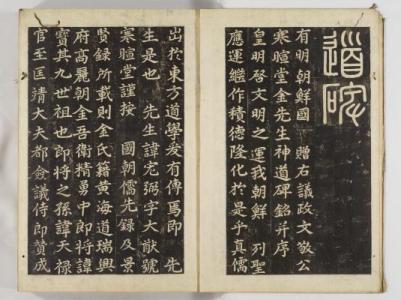 道碑
有明朝鮮國 贈右議政文敬公
寒暄堂金先生神道碑銘并序
皇明啓文明之運我朝鮮 列聖
應運繼作積德隆化於是乎真儒
出於東方道學爰有傳焉即 先
生是也 先生諱宏弼字大猷號
寒暄堂謹按 國朝儒先錄及景
賢錄所載則金氏籍黃海道瑞興
府高麗朝金吾衛精勇中郎將諱
寶其九世祖也郎將之孫諱天祿
官至匡靖大夫都僉議侍郎贊成